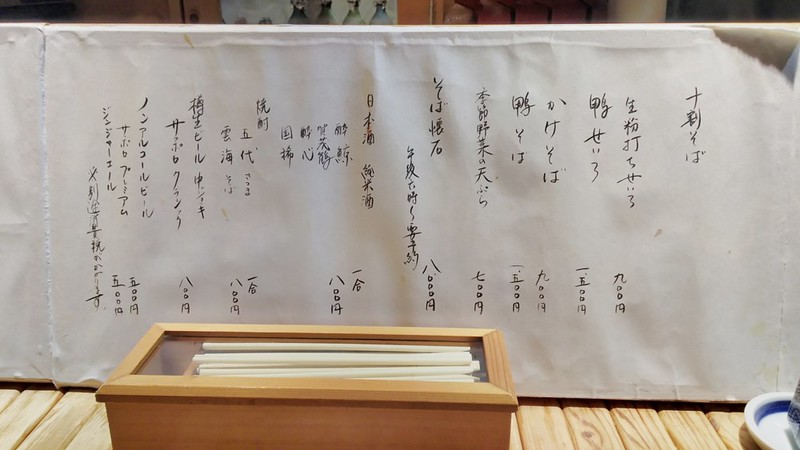 十割そば
生粉打ちせいろ 九〇〇円
鴨せいろ 一、五〇〇円
かけそば 九〇〇円
鴨そば 一、五〇〇円
季節野菜の天ぷら 七〇〇円
そば懐石 八、〇〇〇円
午後六時〜要予約
日本酒 純米酒 一合 八〇〇円
酔鯨
賀茂鶴
酔心
国稀
焼酎 一合 八〇〇円
五代 さつま
雲海 そば
樽生ビール 中ジョッキ 八〇〇円
サッポロクラシック
ノンアルコールビール 五〇〇円
サッポロプレミアム
ジンジャーエール 五〇〇円
※別途消費税がかかります。